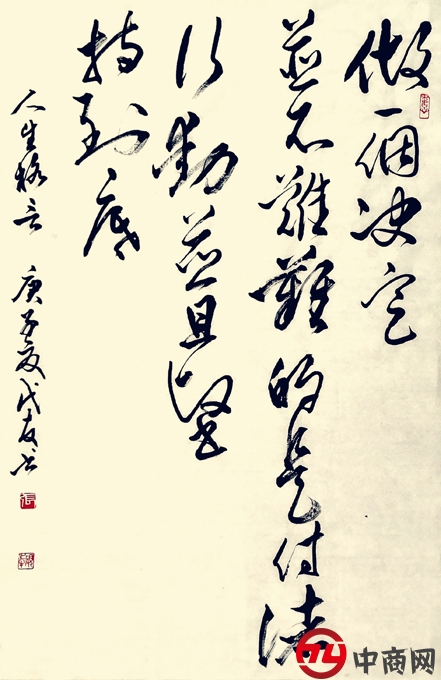 做一個决定
並不難難的是付诸
行動並且堅
持到底
人生格言 庚子夏代友书
中商网